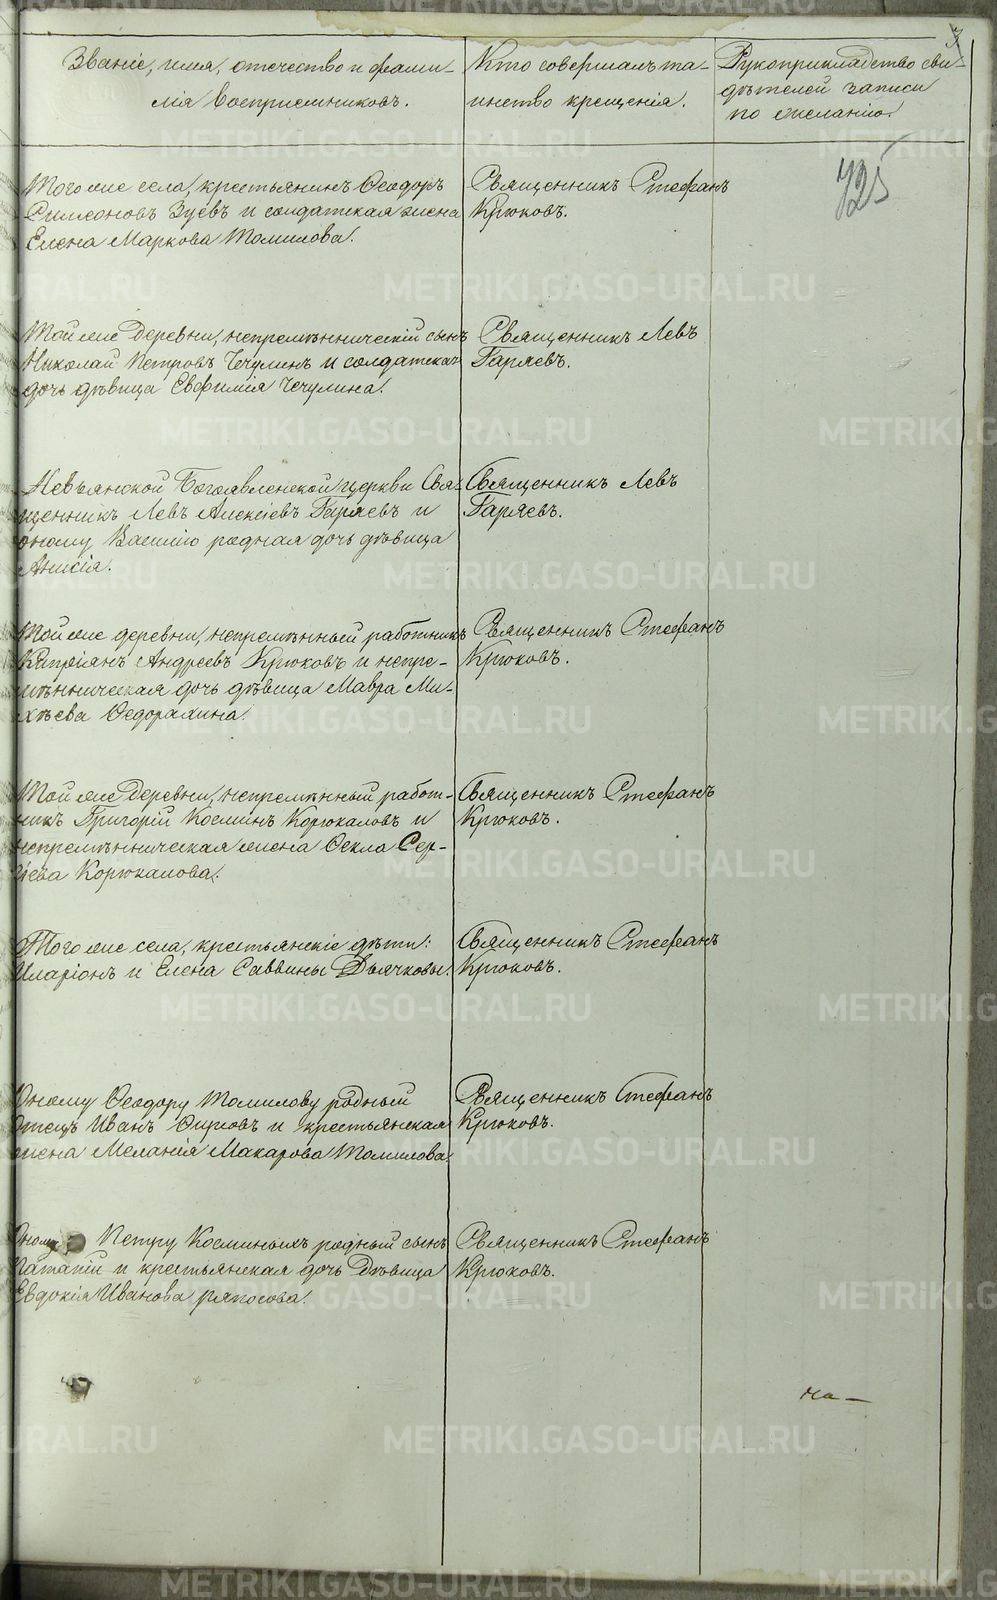 3
Званіе, имя, отечество и фами-
лія воспріемниковъ.
Кто совершалъ та-
инство крещенія.
Рукоприкладство сви-
дѣтелей записи
по желанію.
725
Того же села, крестьянинъ Ѳеодоръ
Симеоновъ Зуевъ и солдатская жена
Елена Маркова Томилова.
Священникъ Стефанъ
Крюковъ.
Той же Деревни, непремѣнническій сынъ
Николай Петровъ Чечулинъ и солдатская
дочь дѣвица Евфимія Чечулина.
Священникъ Левъ
Гаряевъ.
Невьянской Богоявленской церкви Свя-
щенникъ Левъ Алексіевъ Гаряевъ и
оному Василію родная дочь дѣвица
Анисія.
Священникъ Левъ
Гаряевъ.
Той же деревни, непремѣнный работникъ
Кипріянъ Андреевъ Крюковъ и непре-
мѣнническая дочь дѣвица Мавра Ми-
хѣева Ѳедорахина.
Священникъ Стефанъ
Крюковъ.
Той же Деревни, непремѣнный работ-
никъ Григорій Косминъ Корюкаловъ и
непремѣнническая жена Ѳекла Сер-
гіева Корюкалова.
Священникъ Стефанъ
Крюковъ.
Того же села, крестьянскіе дѣти:
Иларіонъ и Елена Саввины Дьячковы.
Священникъ Стефанъ
Крюковъ.
Оному Ѳеодору Томилову родный
отецъ Иванъ Ѳирсовъ и крестьянская
жена Меланія Макарова Томилова.
Священникъ Стефанъ
Крюковъ.
Оному Петру Косминыхъ родный сынъ
Патапій и крестьянская дочь Дѣвица
Евдокія Иванова ряпосова.
Священникъ Стефанъ
Крюковъ.
на—
METRIKI.GASO-URAL.RU